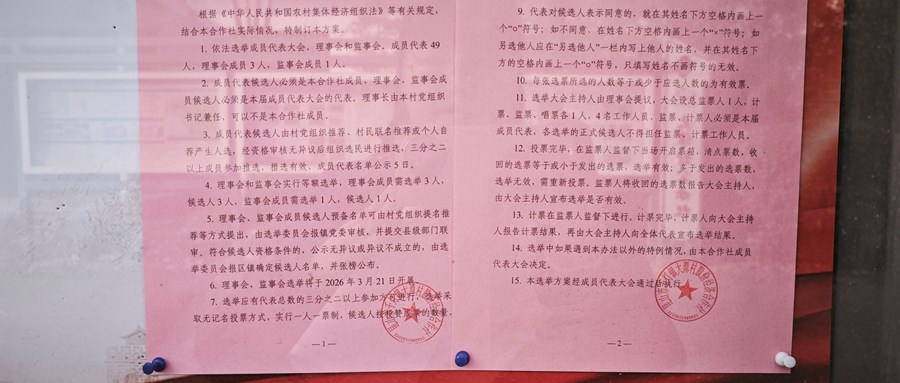 根据《中华人民共和国农村集体经济组织法》等有关规定，
结合本合作社实际情况，特制订本方案。
1. 依法选举成员代表大会，理事会和监事会。成员代表 49
人，理事会成员 3 人，监事会成员 1 人。
2. 成员代表候选人必须是本合作社成员，理事会、监事会成
员候选人必须是本届成员代表大会的代表。理事长由本村党组织
书记兼任，可以不是本合作社成员。
3. 成员代表候选人由村党组织推荐、村民联名推荐或个人自
荐产生人选，经资格审核无异议后组织选民进行推选，三分之二
以上成员参加推选，推选有效，成员代表名单公示 5 日。
4. 理事会和监事会实行等额选举，理事会成员需选举 3 人，
候选人 3 人，监事会成员需选举 1 人，候选人 1 人。
5. 理事会、监事会成员候选人预备名单可由村党组织提名推
荐等方式提出，由选举委员会报镇党委审核，并提交县级部门联
审。符合候选人资格条件的，公示无异议或异议不成立的，由选
举委员会报区镇确定候选人名单，并张榜公布。
6. 理事会、监事会选举将于 2026 年 3 月 21 日开展。
7. 选举应有代表总数的三分之二以上参加方可进行，选举采
取无记名投票方式，实行一人一票制，候选人按投赞成票的数量，
—1—
9. 代表对候选人表示同意的，就在其姓名下方空格内画上一
个“○”符号；如不同意，在姓名下方空格内画上一个“×”符号；如
另选他人应在“另选他人”一栏内写上他人的姓名，并在其姓名下
方的空格内画上一个“○”符号，只填写姓名不画符号的无效。
10. 每张选票所选的人数等于或少于应选人数的为有效票。
11. 选举大会主持人由理事会提议，大会设总监票人 1 人，计
票、监票、唱票各 1 人，4 名工作人员。监票、计票人必须是本届
成员代表。各选举的正式候选人不得担任监票、计票工作人员。
12. 投票完毕，在监票人监督下当场开启票箱，清点票数，收
回的选票等于或小于发出的选票，选举有效；多于发出的选票数，
选举无效，需重新投票。监票人将收回的选票数报告大会主持人，
由大会主持人宣布选举是否有效。
13. 计票在监票人监督下进行，计票完毕，计票人向大会主持
人报告计票结果，再由大会主持人向全体代表宣布选举结果。
14. 选举中如果遇到本办法以外的特例情况，由本合作社成员
代表大会决定。
15. 本选举方案经成员代表大会通过后执行。
—2—